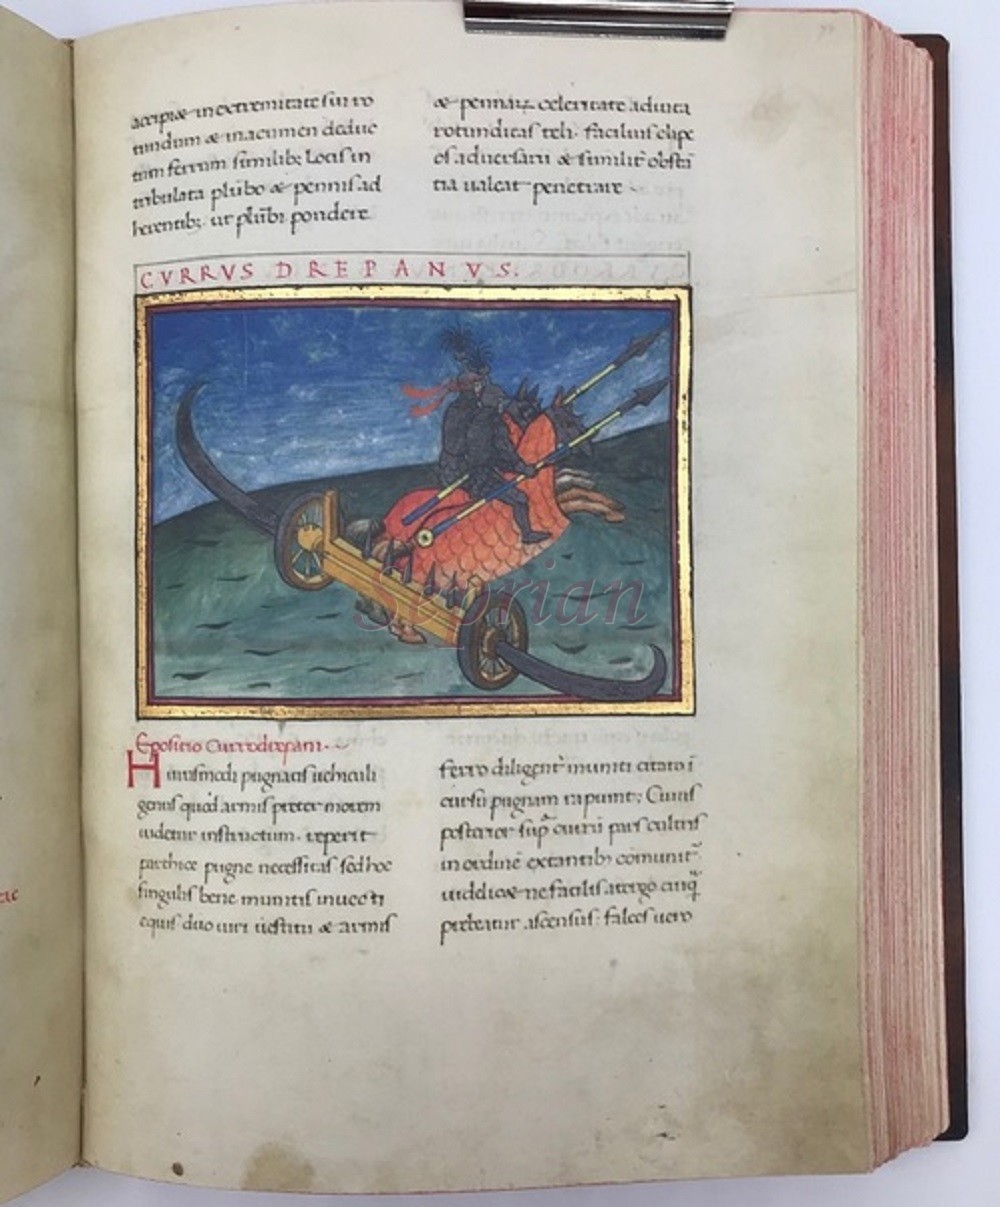 accipiæ in extremitate sui ro
tundum & in acumen deduc
tum ferrum similib; locis in
tribulata plūbo & pennis ad
herentib; ut plūbi pondere
& pennaꝝ celeritate adiuta
rotunditas teli facilius clipe
os adversarii & similit obsta
tia valeat penetrare
CVRRVS DREPANVS.
Expositio Currodrepani.
Huiusmodi pugnacis vehiculi
genus quod armis preter morem
videtur instructum. reperit
parthice pugne necessitas sed hoc
singulis bene munitis invecti
equis duo viri vestitu & armis
ferro diligent muniti citato ī
cursu pugnam rapiunt; Cuius
posterior sup currū pars cultris
in ordinē extantib; comunit
videlicæ ne facilis a tergo cuiq
prebeatur ascensus: falces vero
Seprian